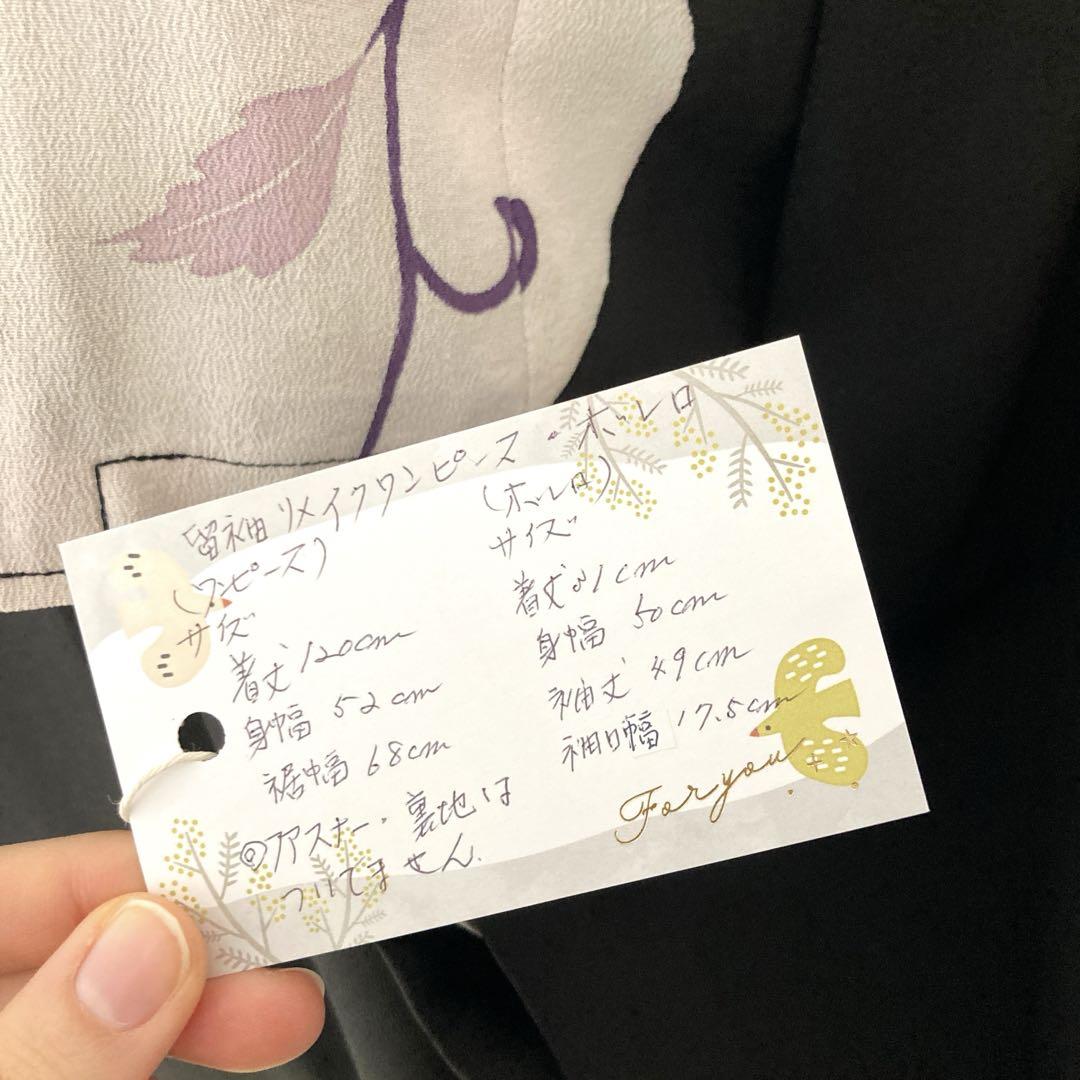 留袖リメイクワンピース・ボレロ
(ワンピース)
サイズ
着丈120cm
身幅 52cm
裾幅 68cm
◎ファスナー・裏地は
ついてません.
(ボレロ)
サイズ
着丈51cm
身幅 50cm
袖丈 49cm
袖口幅 17.5cm
For you